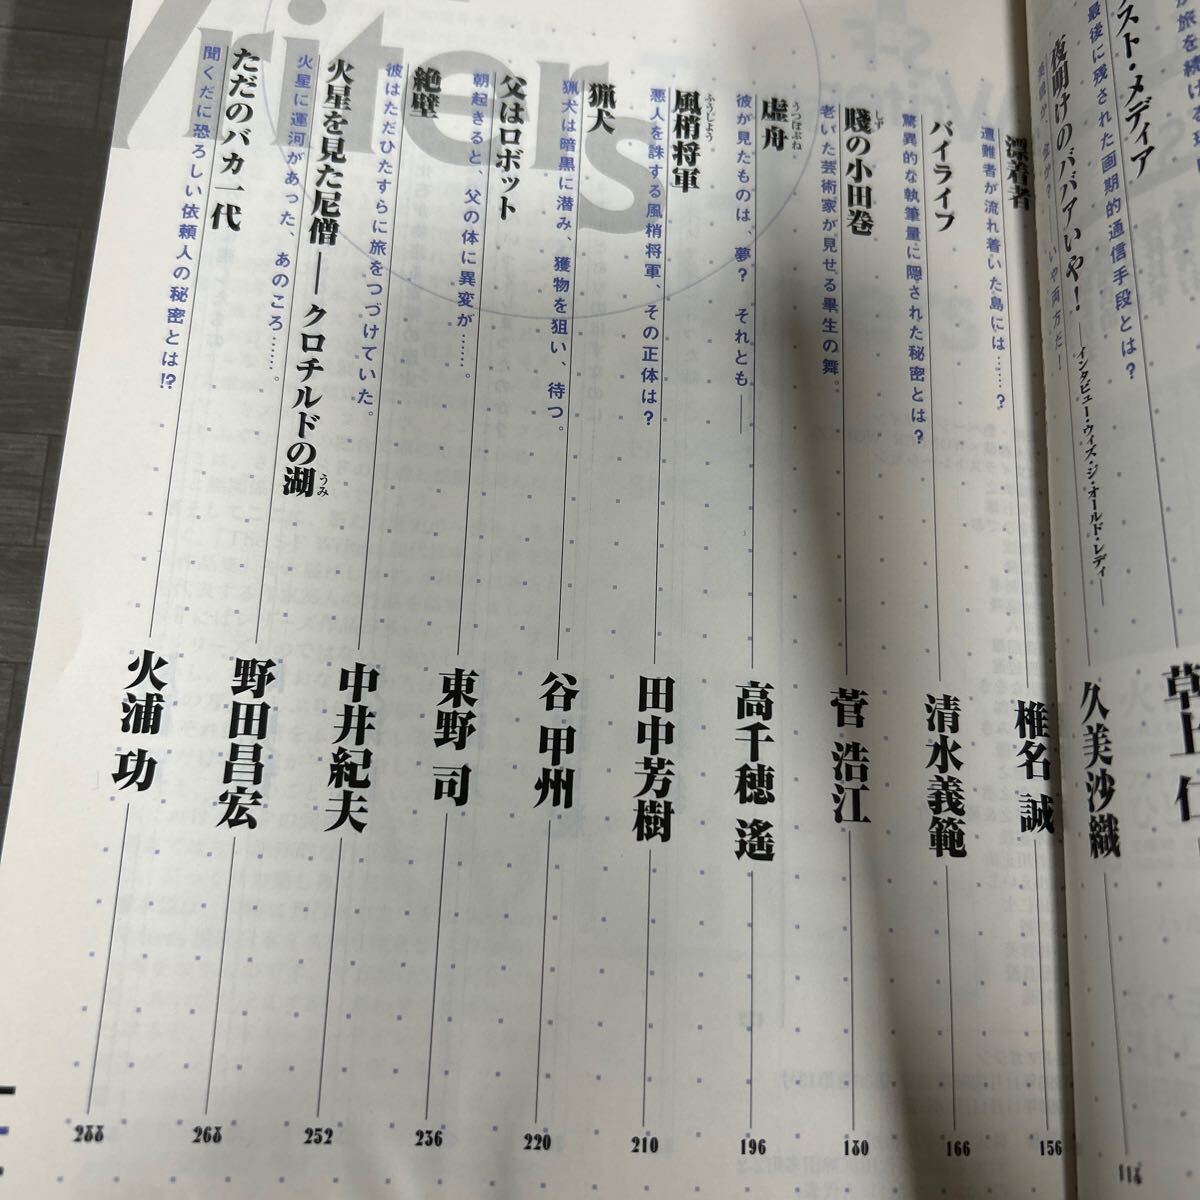 スト・メディア
最後に残された画期的通信手段とは?
草上 仁
夜明けのババアいや!
インタビュー・ウィズ・ジ・オールド・レディ──
いや両方だ!
久美沙織
118
漂着者
遭難者が流れ着いた島には……?
椎名 誠
156
バイライフ
驚異的な執筆量に隠された秘密とは?
清水義範
166
賤の小田巻
しず
老いた芸術家が見せる畢生の舞。
菅 浩江
180
虚舟
うつぼぶね
彼が見たものは、夢? それとも──
高千穂 遙
196
風梢将軍
ふうじよう
悪人を誅する風梢将軍、その正体は?
田中芳樹
210
猟犬
猟犬は暗黒に潜み、獲物を狙い、待つ。
谷 甲州
220
父はロボット
朝起きると、父の体に異変が……。
東野 司
236
絶壁
彼はただひたすらに旅をつづけていた。
中井紀夫
252
火星を見た尼僧──クロチルドの湖
うみ
火星に運河があった、あのころ……。
野田昌宏
268
ただのバカ一代
聞くだに恐ろしい依頼人の秘密とは!?
火浦 功
288
Writers